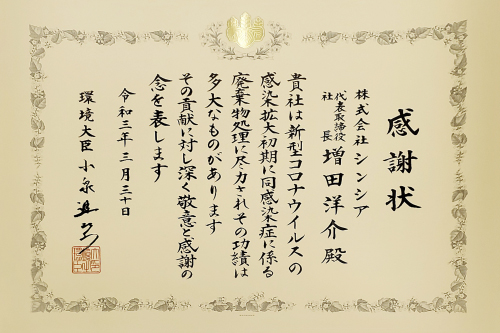 感謝状
株式会社シンシア
代表取締役
社長
増田洋介殿
貴社は新型コロナウイルスの
感染拡大初期に同感染症に係る
廃棄物処理に尽力されその功績は
多大なものがあります
その貢献に対し深く敬意と感謝の
念を表します
令和三年三月三十日
環境大臣 小泉進